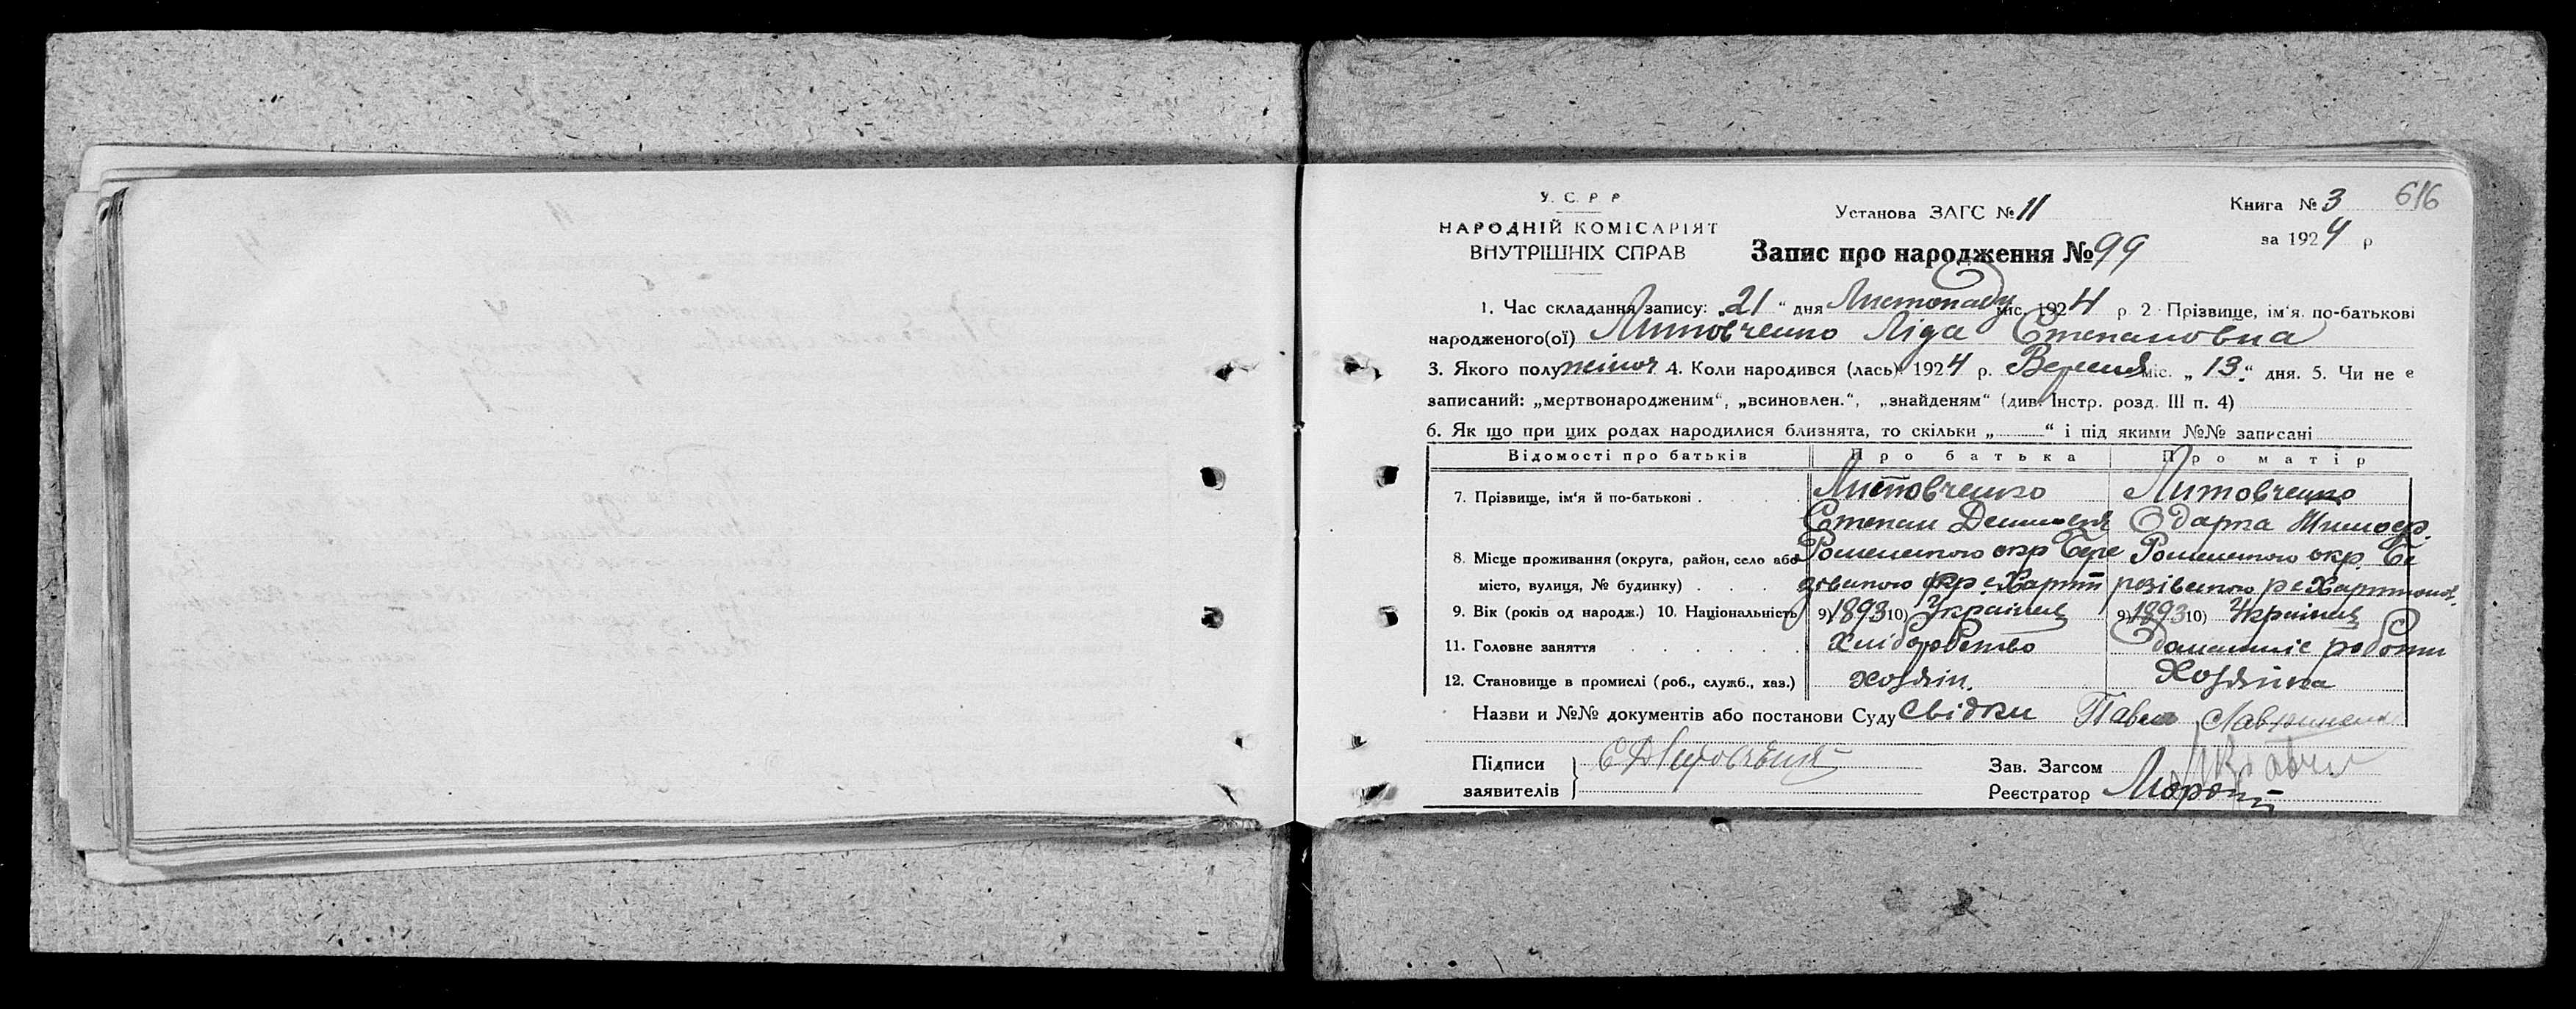 616
У. С. Р Р
НАРОДНІЙ КОМІСАРІЯТ
ВНУТРІШНІХ СПРАВ
Установа ЗАГС № 11
Книга № 3
за 1924 р
Запис про народження № 99
1. Час складання запису: „21“ дня Листопаду міс. 1924 р. 2 Прізвище, ім'я, по-батькові
народженого(ої) Литовченко Ліда Степановна
3. Якого полу жіноч 4. Коли народився (лась) 1924 р. Вересня міс. „13“ дня. 5. Чи не є
записаний: „мертвонародженим“, „всиновлен.“, „знайденям“ (див. Інстр. розд. III п. 4)
6. Як що при цих родах народилися близнята, то скільки „ “ і під якими №№ записані
Відомості про батьків Про батька Про матір
7. Прізвище, ім'я й по-батькові . Литовченко Литовченко
Степан Одарка
8. Місце проживання (округа, район, село або Роменського окр Бере Роменського окр. Бе
місто, вулиця, № будинку) . зівського резівського
9. Вік (років од народж.) 10. Національність 9) 1893 10) Українец 9) 1893 10) Українец
11. Головне заняття Хліборобство домашніє роботи
12. Становище в промислі (роб., служб., хаз.) хозяін. Хозяінка
Назви и №№ документів або постанови Суду Свідки Павло
Підписи
заявителів
Зав. Загсом
Реєстратор